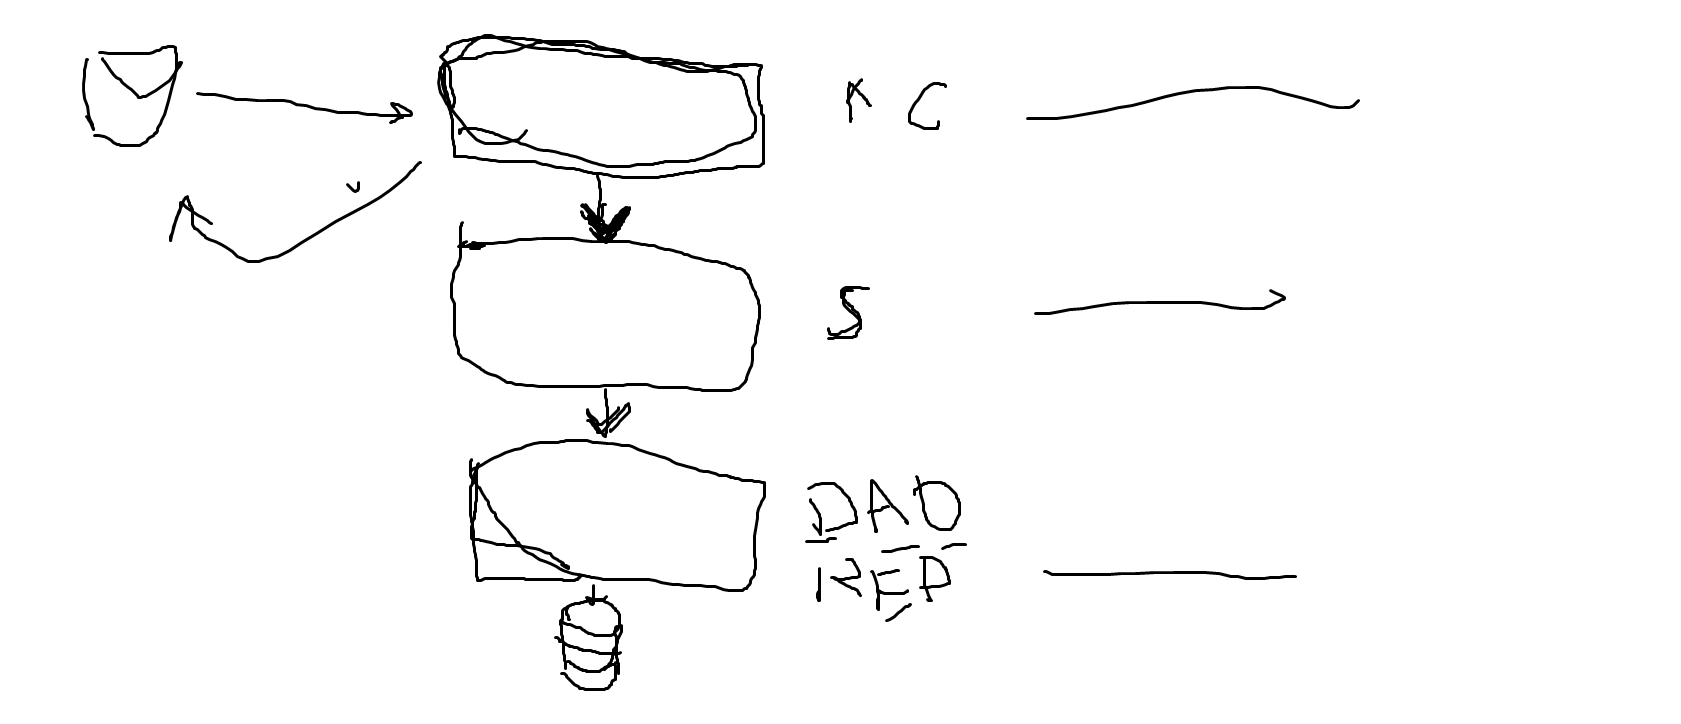 K C
S
DAO
REP